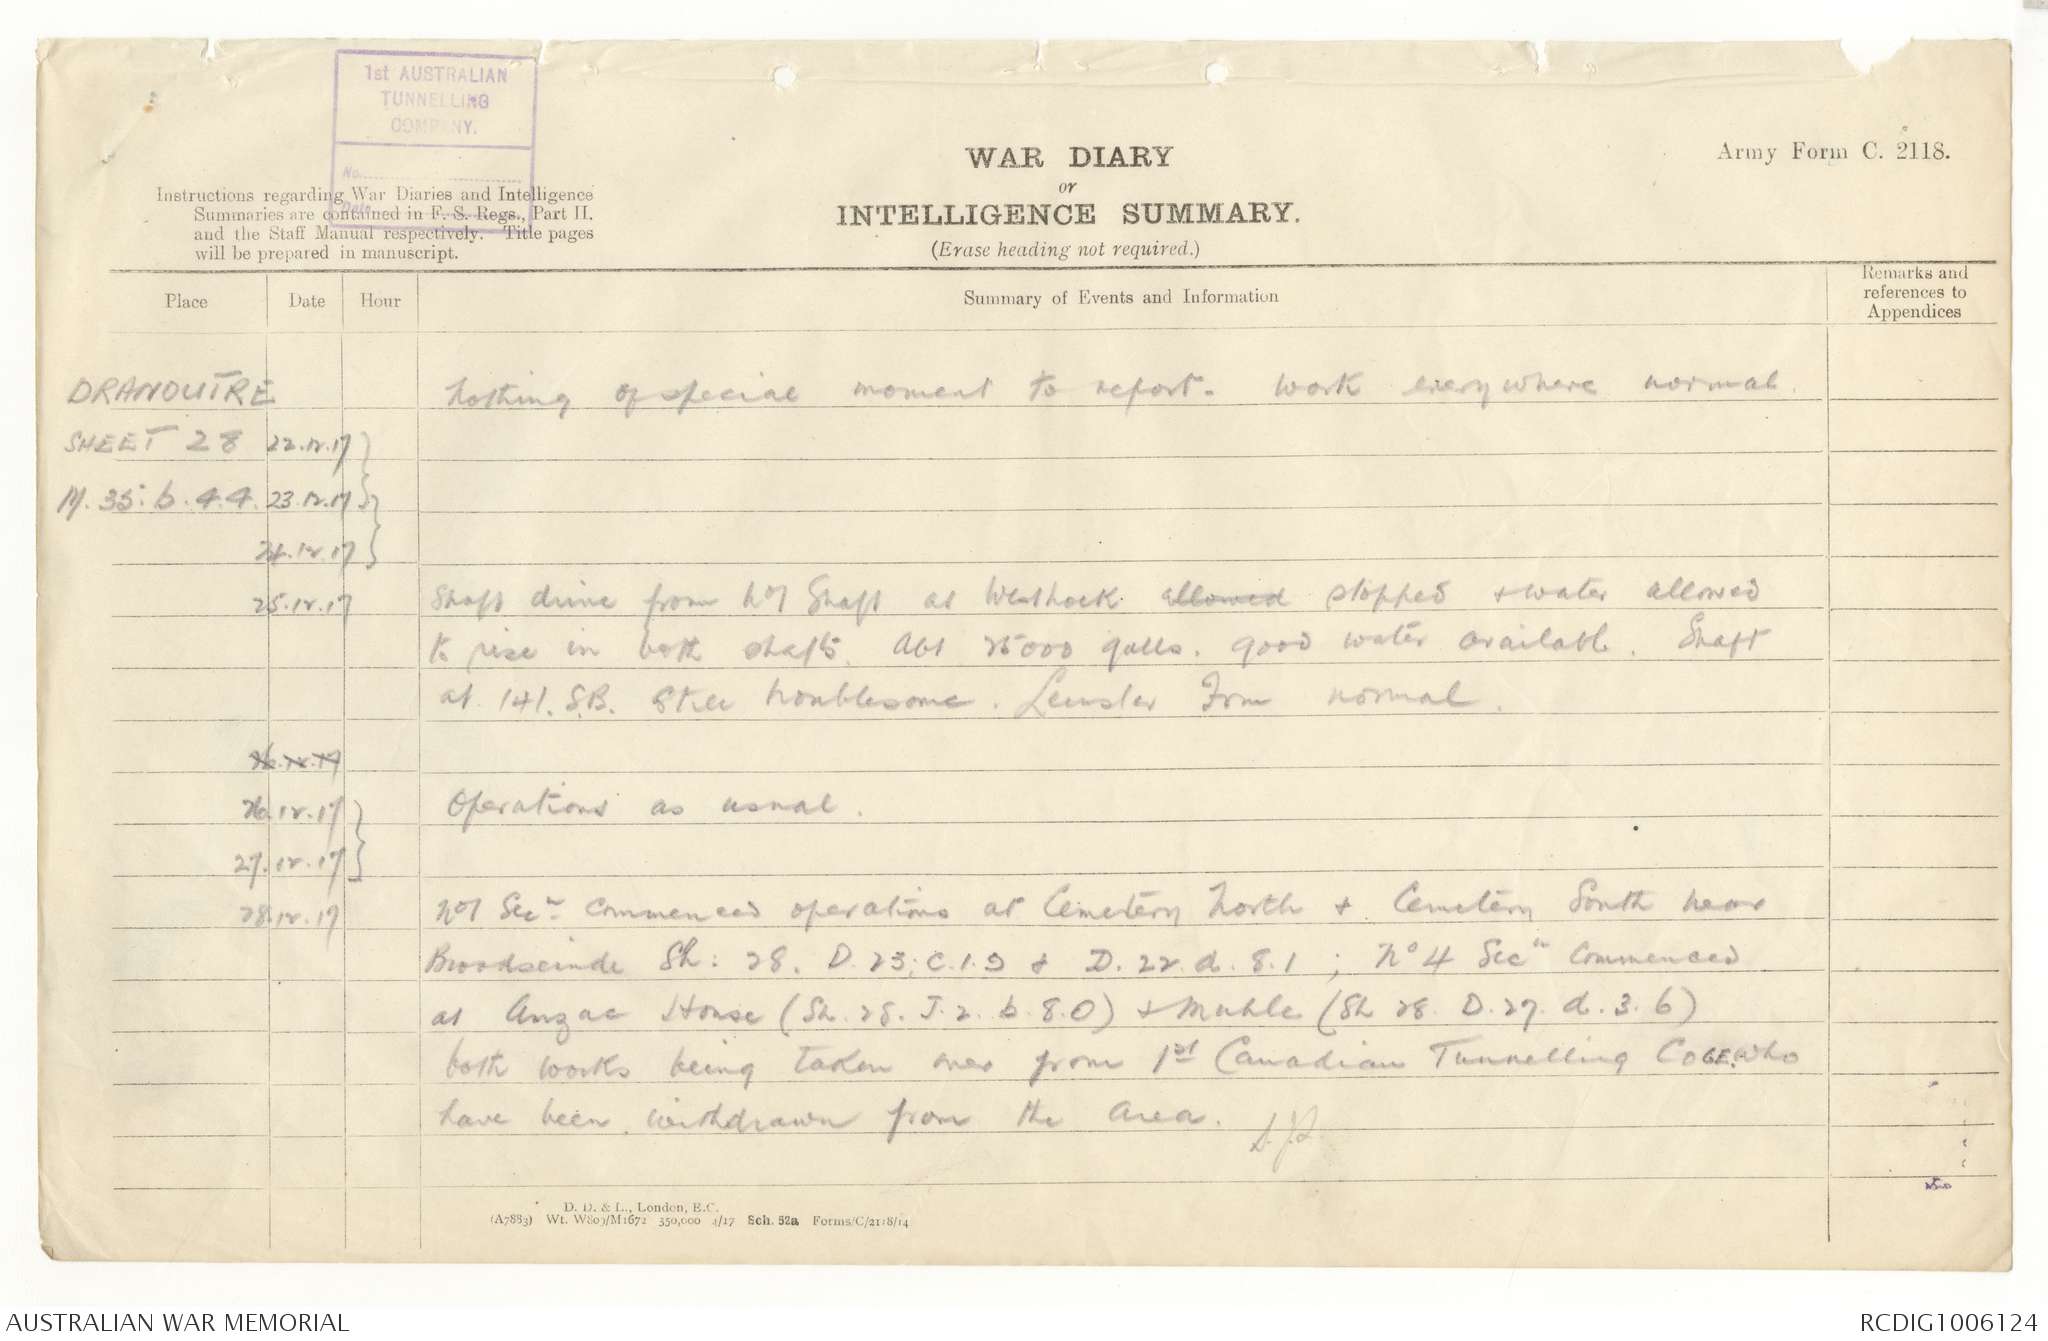 1st AUSTRALIAN
TUNNELLING
COMPANY.
No.
Date
WAR DIARY
or
INTELLIGENCE SUMMARY.
(Erase heading not required.)
Army Form C. 2118.
Instructions regarding War Diaries and Intelligence
Summaries are contained in F. S. Regs., Part II.
and the Staff Manual respectively. Title pages
will be prepared in manuscript.
Place Date Hour Summary of Events and Information Remarks and references to Appendices
DRANOUTRE Nothing of special moment to report. Work everywhere normal.
SHEET 28 22.12.17
M. 35. b. 4.4. 23.12.17
24.12.17
25.12.17 Shaft drive from No 1 Shaft at Westhoek allowed stopped & water allowed
to rise in both shafts. Abt 25000 galls. good water available. Shaft
at 141. S.B. Still troublesome. Leinster Frm normal.
26.12.17
26.12.17 Operations as usual.
27.12.17
28.12.17 No 1 Secn. commenced operations at Cemetery North & Cemetery South near
Broodseinde Sh: 28. D.23.c.1.9 & D.22.d.8.1; No 4 Secn commenced
at Anzac House (Sh. 28. J.2.b.8.0) & Muhle (Sh 28. D.27.d.3.6)
both works being taken over from 1st Canadian Tunnelling Co C.E. who
have been withdrawn from the area.
D. D. & L., London, E.C.
(A7883) Wt. W809/M1672 350,000 4/17 Sch. 52a Forms/C/2118/14
AUSTRALIAN WAR MEMORIAL RCDIG1006124